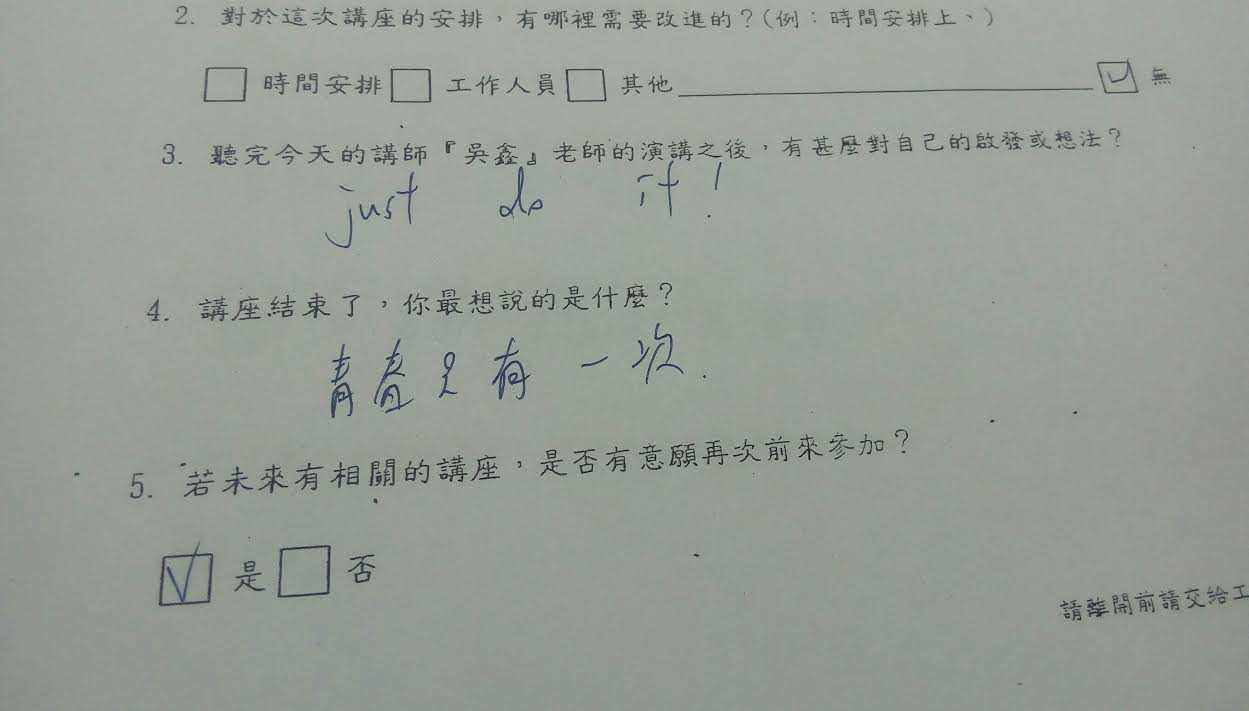 2. 對於這次講座的安排，有哪裡需要改進的？(例：時間安排上、)
□ 時間安排 □ 工作人員 □ 其他 ☑ 無
3. 聽完今天的講師『吳鑫』老師的演講之後，有甚麼對自己的啟發或想法？
just do it!
4. 講座結束了，你最想說的是什麼？
青春只有一次.
5. 若未來有相關的講座，是否有意願再次前來參加？
☑ 是 □ 否
請離開前請交給工